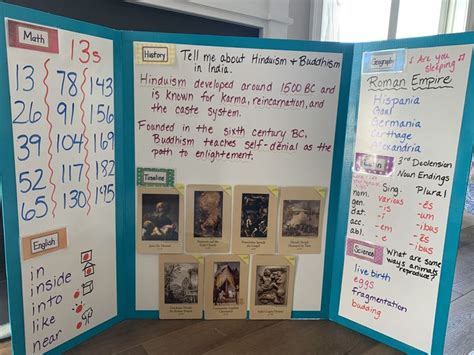 Math
13s
13 78 143
26 91 156
39 104 169
52 117 182
65 130 195
English
in
inside
into
like
near
History
Tell me about Hinduism & Buddhism
in India.
Hinduism developed around 1500 BC and
is known for karma, reincarnation, and
the caste system.
Founded in the sixth century BC,
Buddhism teaches self-denial as the
path to enlightement.
Timeline
Geography
Are you
sleeping
Roman Empire
Hispania
Gaul
Germania
Carthage
Alexandria
Latin
3rd Declension
Noun Endings
Sing. Plural
nom. various -ēs
gen. -is -um
dat. -ī -ibus
acc. -em -ēs
abl. -e -ibus
Science
What are some
ways animals
reproduce?
live birth
eggs
fragmentation
budding